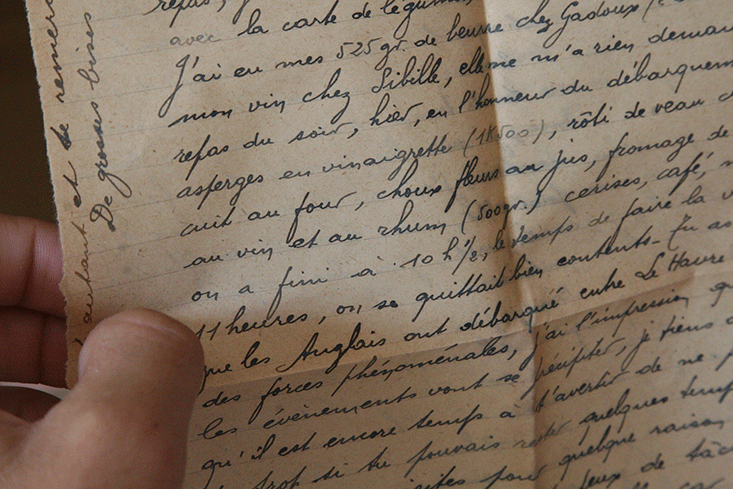 repas, j'
avec la carte de légumes
J'ai eu mes 525 gr. de beurre chez Gadoux
mon vin chez Sibille, elle ne m'a rien deman
repas du soir, hier, en l'honneur du débarquem
asperges en vinaigrette (1K500), rôti de veau
cuit au four, choux fleurs au jus, fromage de
au vin et au rhum (500gr.) cerises, café,
on a fini à 10 h 1/2, le temps de faire la v
11 heures, on se quittait bien contents - Tu as
que les Anglais ont débarqué entre Le Havre
des forces phénoménales, j'ai l'impression q
les évènements vont se précipiter, je tiens
qu'il est encore temps à t'avertir de ne p
trop si tu pouvais rester quelques temp
pour quelque raison
de tâc
autant et te remer
De grosses bises